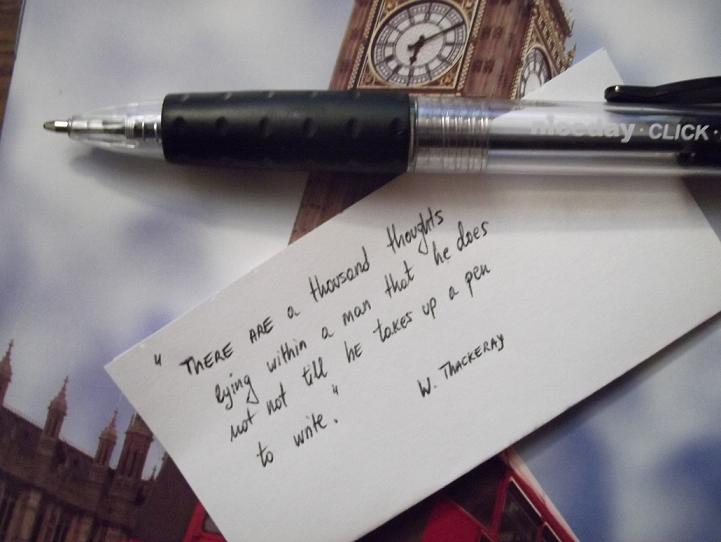 niceday · CLICK ·
" THERE ARE a thousand thoughts
lying within a man that he does
not not till he takes up a pen
to write. "
W. THACKERAY